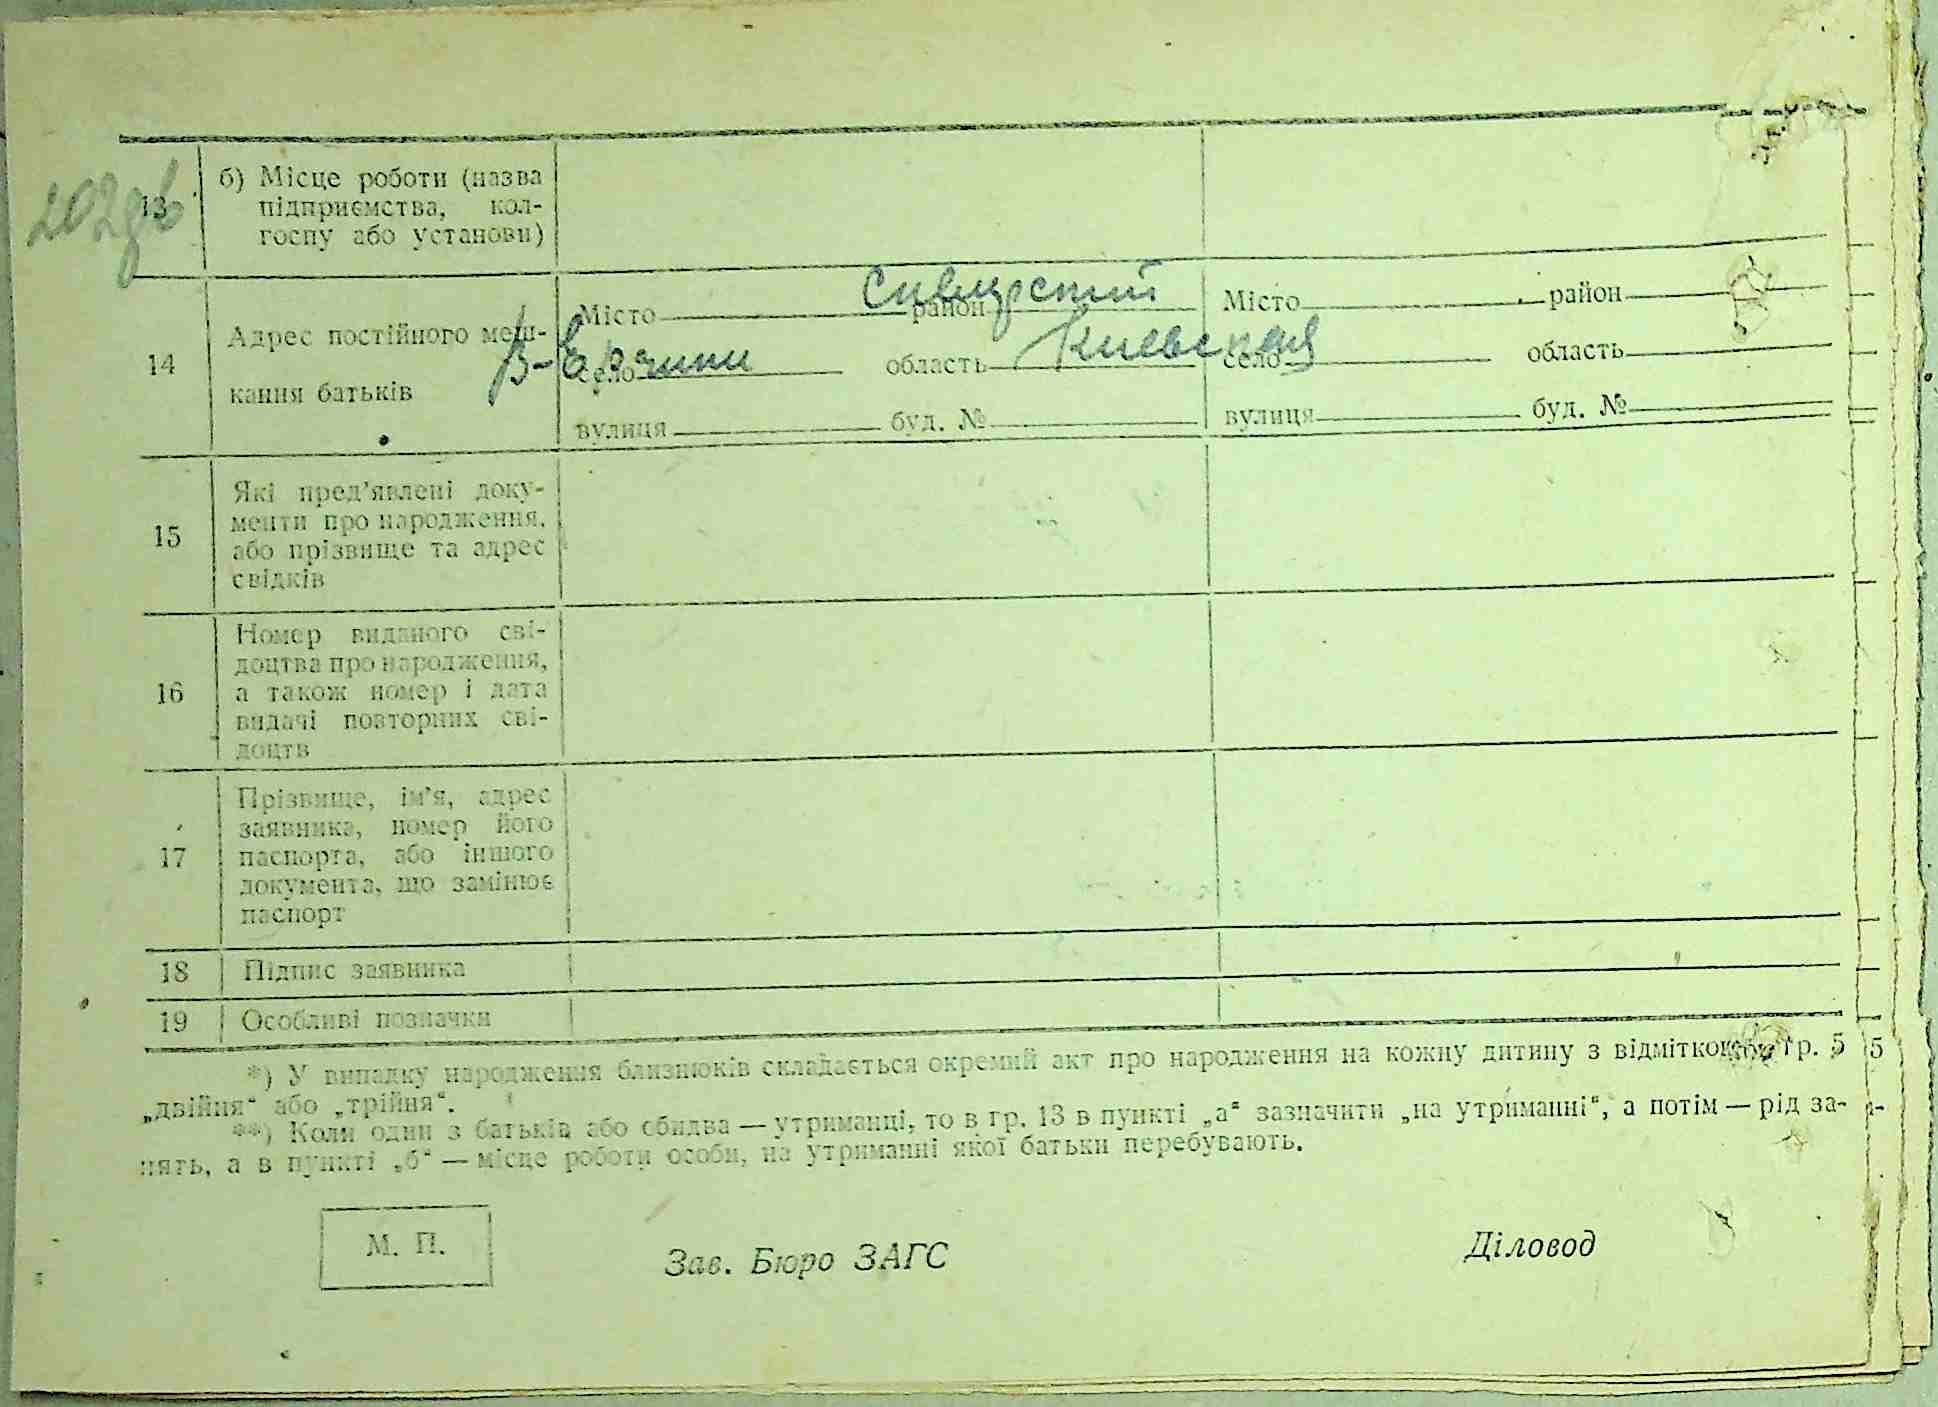 202зв
13
б) Місце роботи (назва
підприємства, кол-
госпу або установи)
14
Адрес постійного меш-
кання батьків
Місто район Сквирский
село В-Ерчики область Киевская
вулиця буд. №
Місто район
село область
вулиця буд. №
15
Які пред’явлені доку-
менти про народження,
або прізвище та адрес
свідків
16
Номер виданого сві-
доцтва про народження,
а також номер і дата
видачі повторних сві-
доцтв
17
Прізвище, ім’я, адрес
заявника, номер його
паспорта, або іншого
документа, що замінює
паспорт
18
Підпис заявника
19
Особливі позначки
*) У випадку народження близнюків складається окремий акт про народження на кожну дитину з відміткою гр. 5
„двійня“ або „трійня“.
**) Коли один з батьків або обидва — утриманці, то в гр. 13 в пункті „а“ зазначити „на утриманні“, а потім — рід за-
нять, а в пункті „б“ — місце роботи особи, на утриманні якої батьки перебувають.
М. П.
Зав. Бюро ЗАГС
Діловод